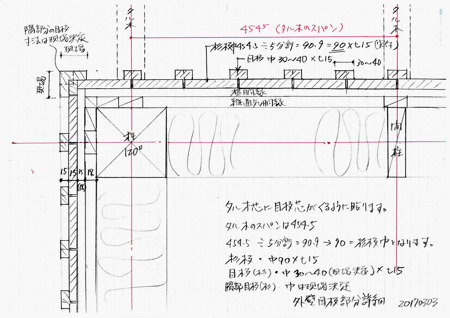 隅部分の目板
寸法は現場決定
現場
現場
タル木
タル木
454.5 (タル木のスパン)
杉板巾454.5÷5分割=90.9→90×t15(実付)
目板 巾30〜40×t15
30〜40
柱
120°
間柱
15 15 15 18
タル木芯に目板芯がくるように貼ります。
タル木のスパンは454.5
454.5÷5分割=90.9→90=杉板巾となります。
杉板・巾90×t15
目板(杉)・巾30〜40(現場決定)×t15
隅部目板(杉) 巾は現場決定
外壁目板部分詳細 20170303